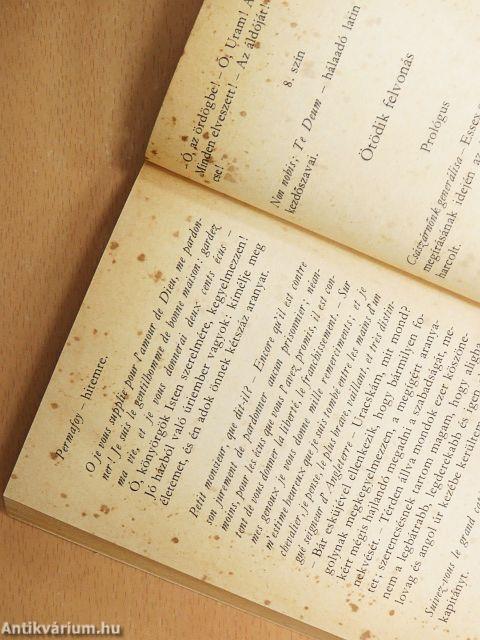 Permafoy – hitemre.
O je vous supplie pour l'amour de Dieu, me pardon-
ner! Je suis le gentilhomme de bonne maison; gardez
ma vie, et je vous donnerai deux cents écus –
Ó, könyörgök Isten szerelmére, kegyelmezzen!
Jó házból való úriember vagyok; kímélje meg
életemet, és én adok önnek kétszáz aranyat.
Petit monsieur, que dit-il? – Encore qu'il est contre
son jurement de pardonner aucun prisonnier; néan-
moins, pour les écus que vous l'avez promis, il est con-
tent de vous donner la liberté, le franchissement. – Sur
mes genoux je vous donne mille remerciments; et je
m'estime heureux que je suis tombé entre les mains d'un
chevalier, je pense, le plus brave, vaillant, et très distin-
gué seigneur d'Angleterre – Uracskám, mit mond?
– Bár esküjével ellenkezik, hogy bármilyen fo-
golynak megkegyelmezzen, a megígért aranya-
kért mégis hajlandó megadni a szabadságát, me-
nekvését. – Térden állva mondok ezer köszöne-
tet; szerencsésnek tartom magam, hogy aligha
nem a legbátrabb, legderekabb és igen
lovag és angol úr kezébe kerültem
Suivez-vous le grand
kapitányt.
–Ó, az ördögbe! – Ó, Uram!
Minden elveszett! – Az áldóját!
cse!
8. szín
Non nobis; Te Deum – hálaadó latin
kezdőszavai.
Ötödik felvonás
Prológus
Császárnőnk generálisa – Essex
megírásának idején az
harcolt.
Antikvárium.hu